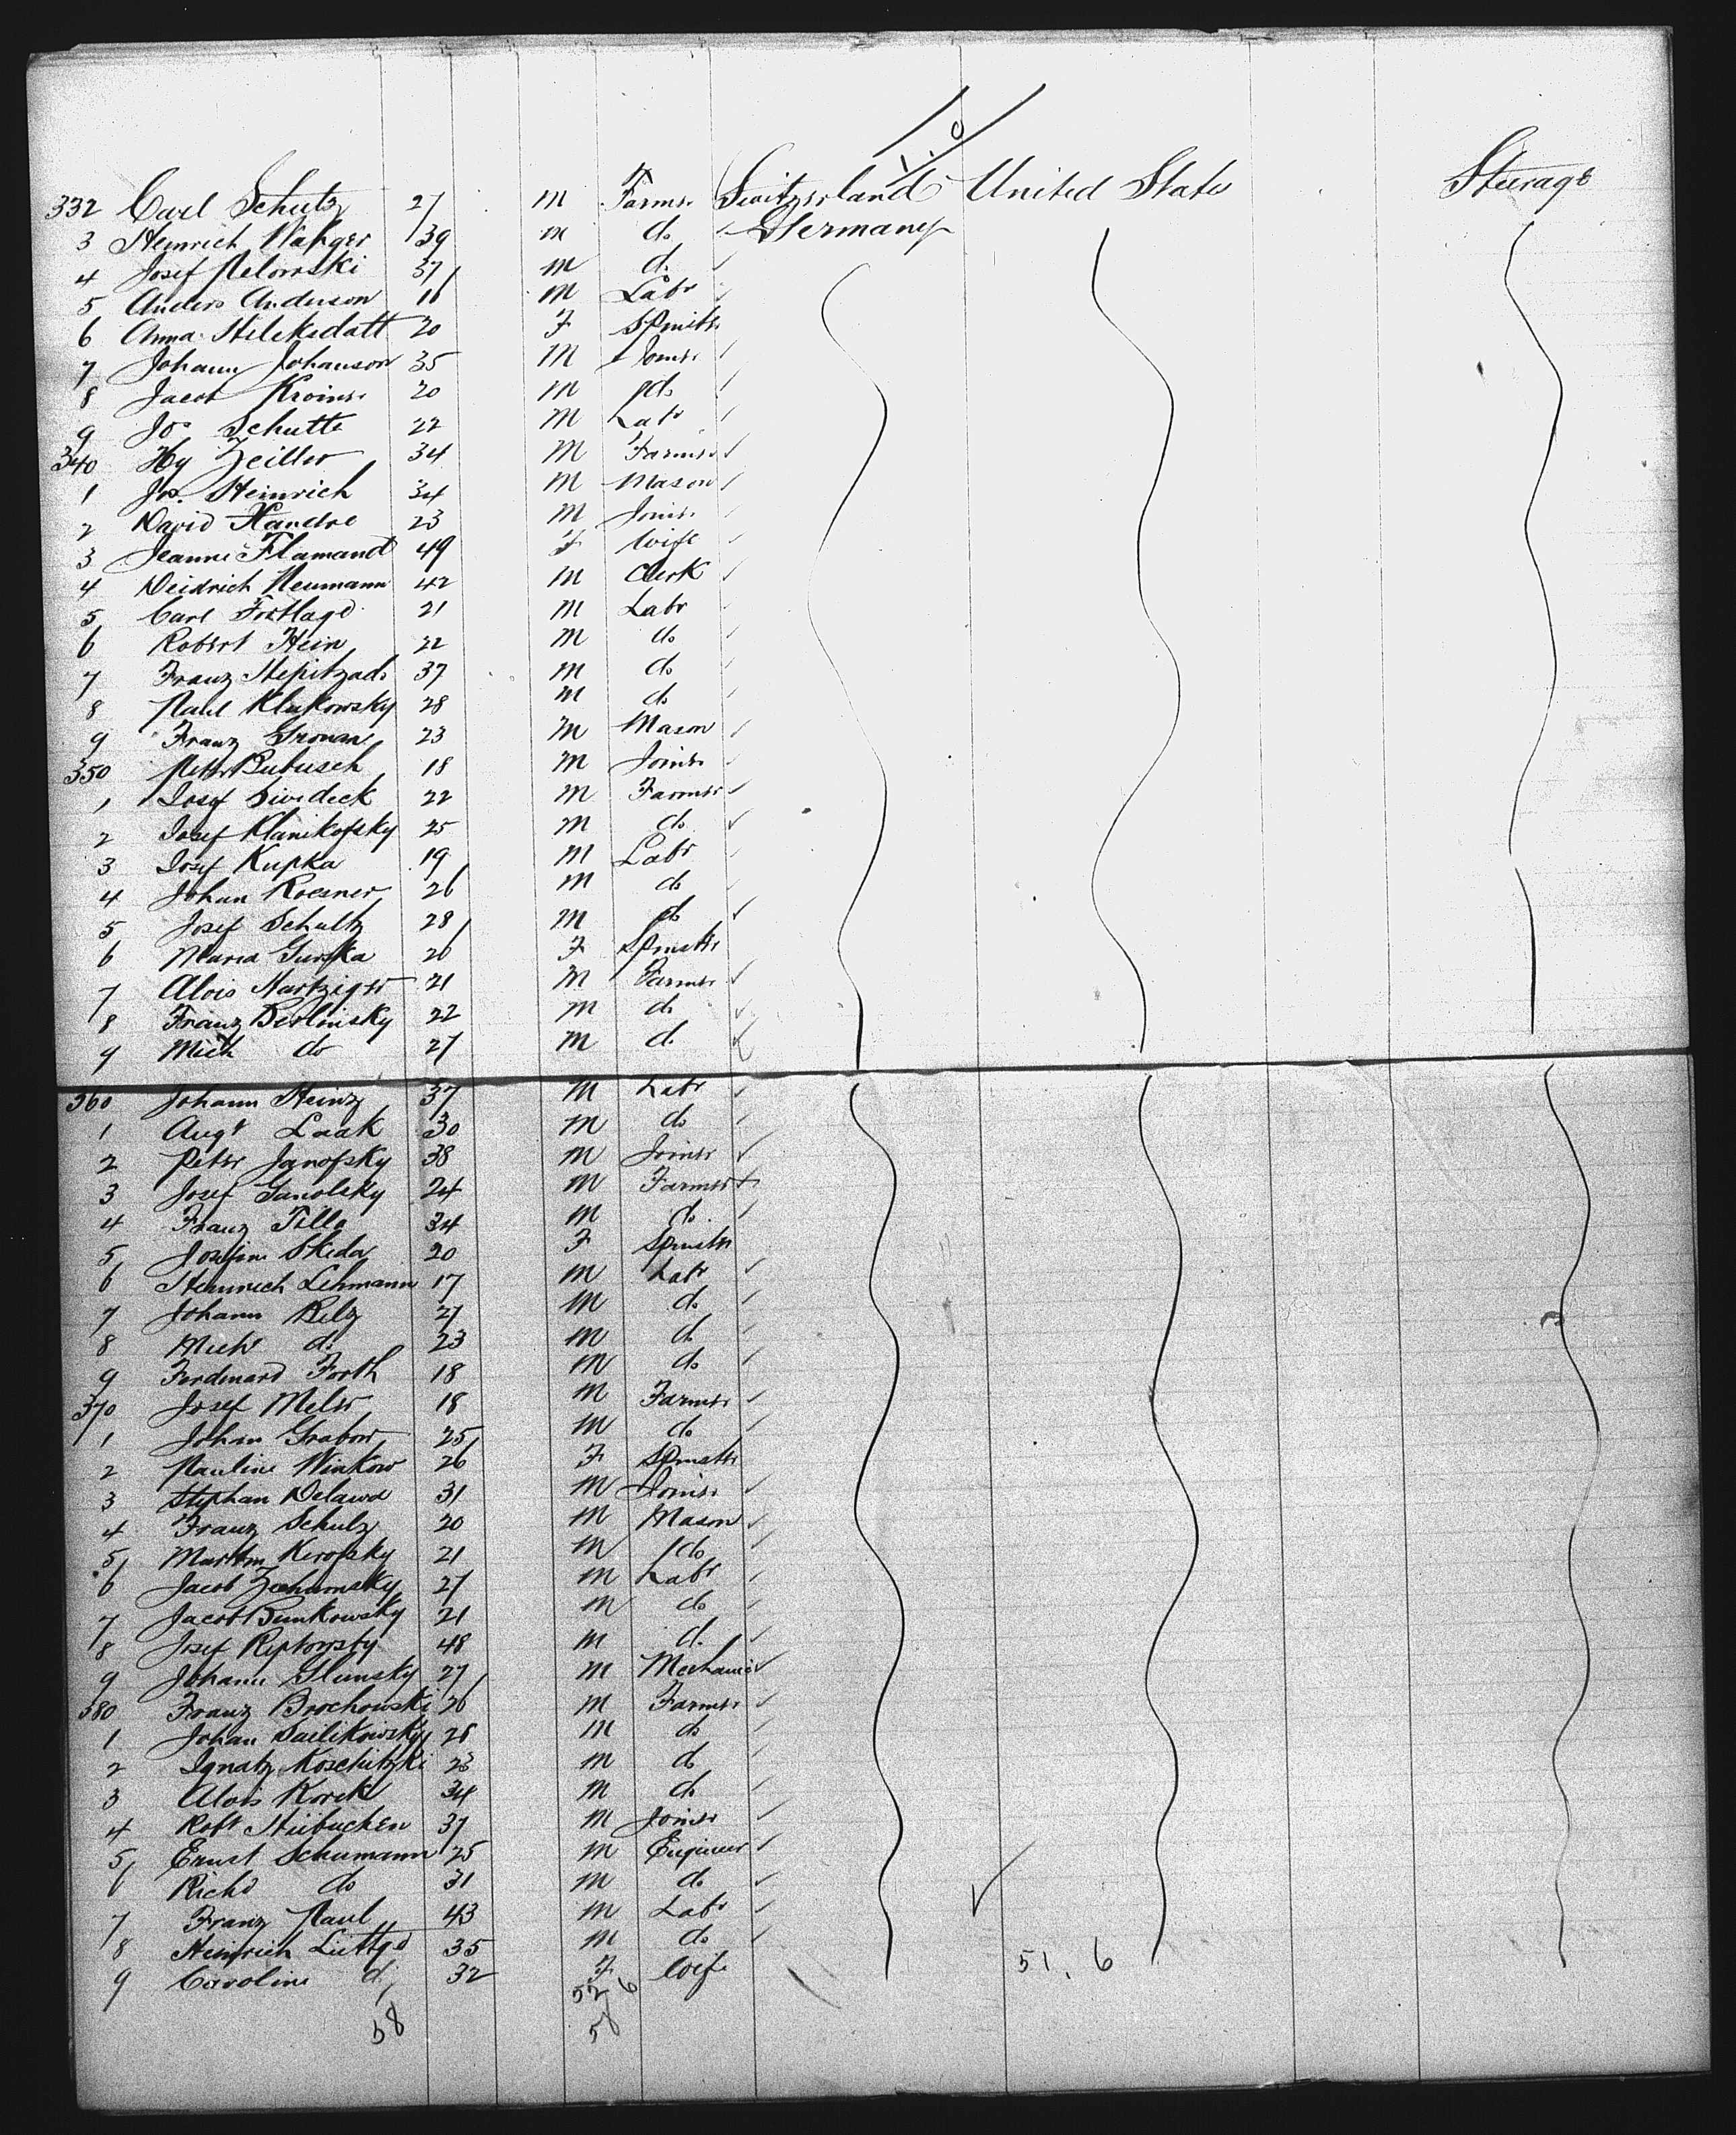 332 Carl Schultz 27 m Farmer Switzerland United States Steerage
3 Heinrich 39 m do Germany
4 Josef 37 m do
5 Anders Anderson 16 m Labr
6 Anna 20 F Spinstr
7 Johann Johanson 35 m Joiner
8 Jacob 20 m do
9 Jos Schutte 22 m Labr
340 Hy Zeiller 34 m Farmer
1 Jos. Heinrich 34 m Mason
2 David 23 m Joiner
3 Jeanne Flamand 49 F Wife
4 Deidrich Neumann 42 m Clerk
5 Carl Fortlage 21 m Labr
6 Robert Hein 22 m do
7 Franz 37 m do
8 Paul Klukowsky 28 m do
9 Franz Gronan 23 m Mason
350 Peter Bubusch 18 m Joiner
1 Josef 22 m Farmer
2 Josef Klanikofsky 25 m do
3 Josef Kupka 19 m Labr
4 Johan Roesner 26 m do
5 Josef Schultz 28 m do
6 Maria Gurska 26 F Spinstr
7 Alois 21 m Farmer
8 Franz Berlinsky 22 m do
9 Mich do 27 m do
360 Johann Heinz 37 m Labr
1 Augt Laak 30 m do
2 Peter Janofsky 38 m Joiner
3 Josef Ganolsky 24 m Farmer
4 Franz Tille 34 m do
5 Josefine Skeda 20 F Spinstr
6 Heinrich Lehmann 17 m Labr
7 Johann Belz 27 m do
8 Michl do 23 m do
9 Ferdinand Forth 18 m do
370 Josef Meler 18 m Farmer
1 Johan Grabow 25 m do
2 Pauline Winkow 26 F Spinstr
3 Stephan Delawa 31 m Joiner
4 Franz Schulz 20 m Mason
5 Martin Kerofsky 21 m do
6 Jacob 27 m Labr
7 Jacob Bunkowsky 21 m do
8 Josef 48 m do
9 Johann Glunsky 27 m Mechanic
380 Franz Brochowski 26 m Farmer
1 Johan Sailikowsky 28 m do
2 Ignatz Koschutzki 23 m do
3 Alois Korik 34 m do
4 Robt 37 m Joiner
5 Ernst Schumann 25 m Engineer
6 Richd do 31 m do
7 Franz Paul 43 m Labr
8 Heinrich Luttge 35 m do
9 Caroline do 32 F Wife
51. 6
52 6
58 58